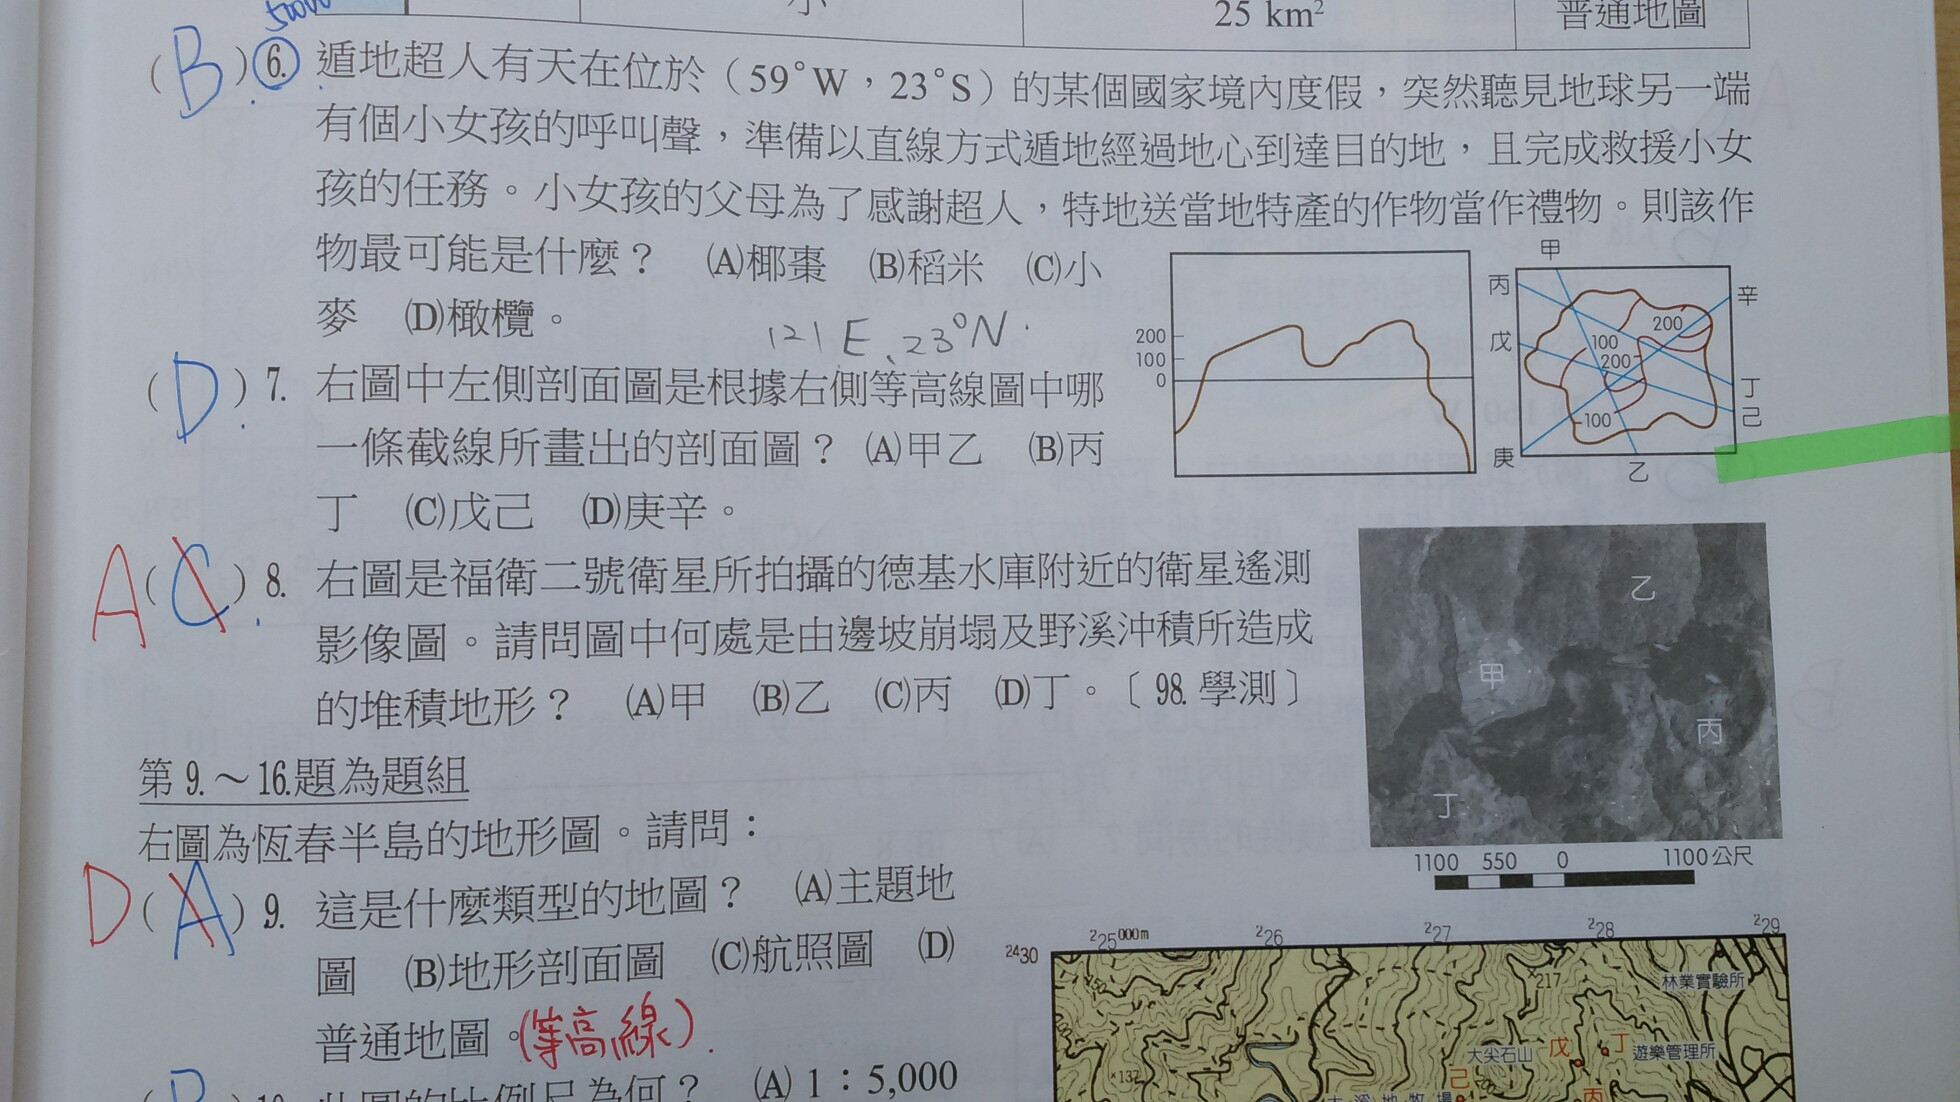 25 km²
普通地圖
(B)6. 遁地超人有天在位於（59°W，23°S）的某個國家境內度假，突然聽見地球另一端
有個小女孩的呼叫聲，準備以直線方式遁地經過地心到達目的地，且完成救援小女
孩的任務。小女孩的父母為了感謝超人，特地送當地特產的作物當作禮物。則該作
物最可能是什麼？ (A)椰棗 (B)稻米 (C)小
麥 (D)橄欖。
121E、23°N
(D)7. 右圖中左側剖面圖是根據右側等高線圖中哪
一條截線所畫出的剖面圖？ (A)甲乙 (B)丙
丁 (C)戊己 (D)庚辛。
200
100
0
甲
丙
戊
庚
辛
丁
己
乙
200
100
200
100
A(C)8. 右圖是福衛二號衛星所拍攝的德基水庫附近的衛星遙測
影像圖。請問圖中何處是由邊坡崩塌及野溪沖積所造成
的堆積地形？ (A)甲 (B)乙 (C)丙 (D)丁。〔98.學測〕
乙
甲
丙
丁
1100 550 0 1100公尺
第9.～16.題為題組
右圖為恆春半島的地形圖。請問：
D(A)9. 這是什麼類型的地圖？ (A)主題地
圖 (B)地形剖面圖 (C)航照圖 (D)
普通地圖。(等高線)
10. 此圖的比例尺為何？ (A) 1：5,000
²25⁰⁰⁰m ²26 ²27 ²28 ²29
²⁴30
217
林業實驗所
大尖石山
戊
丁
遊樂管理所
137
己
丙